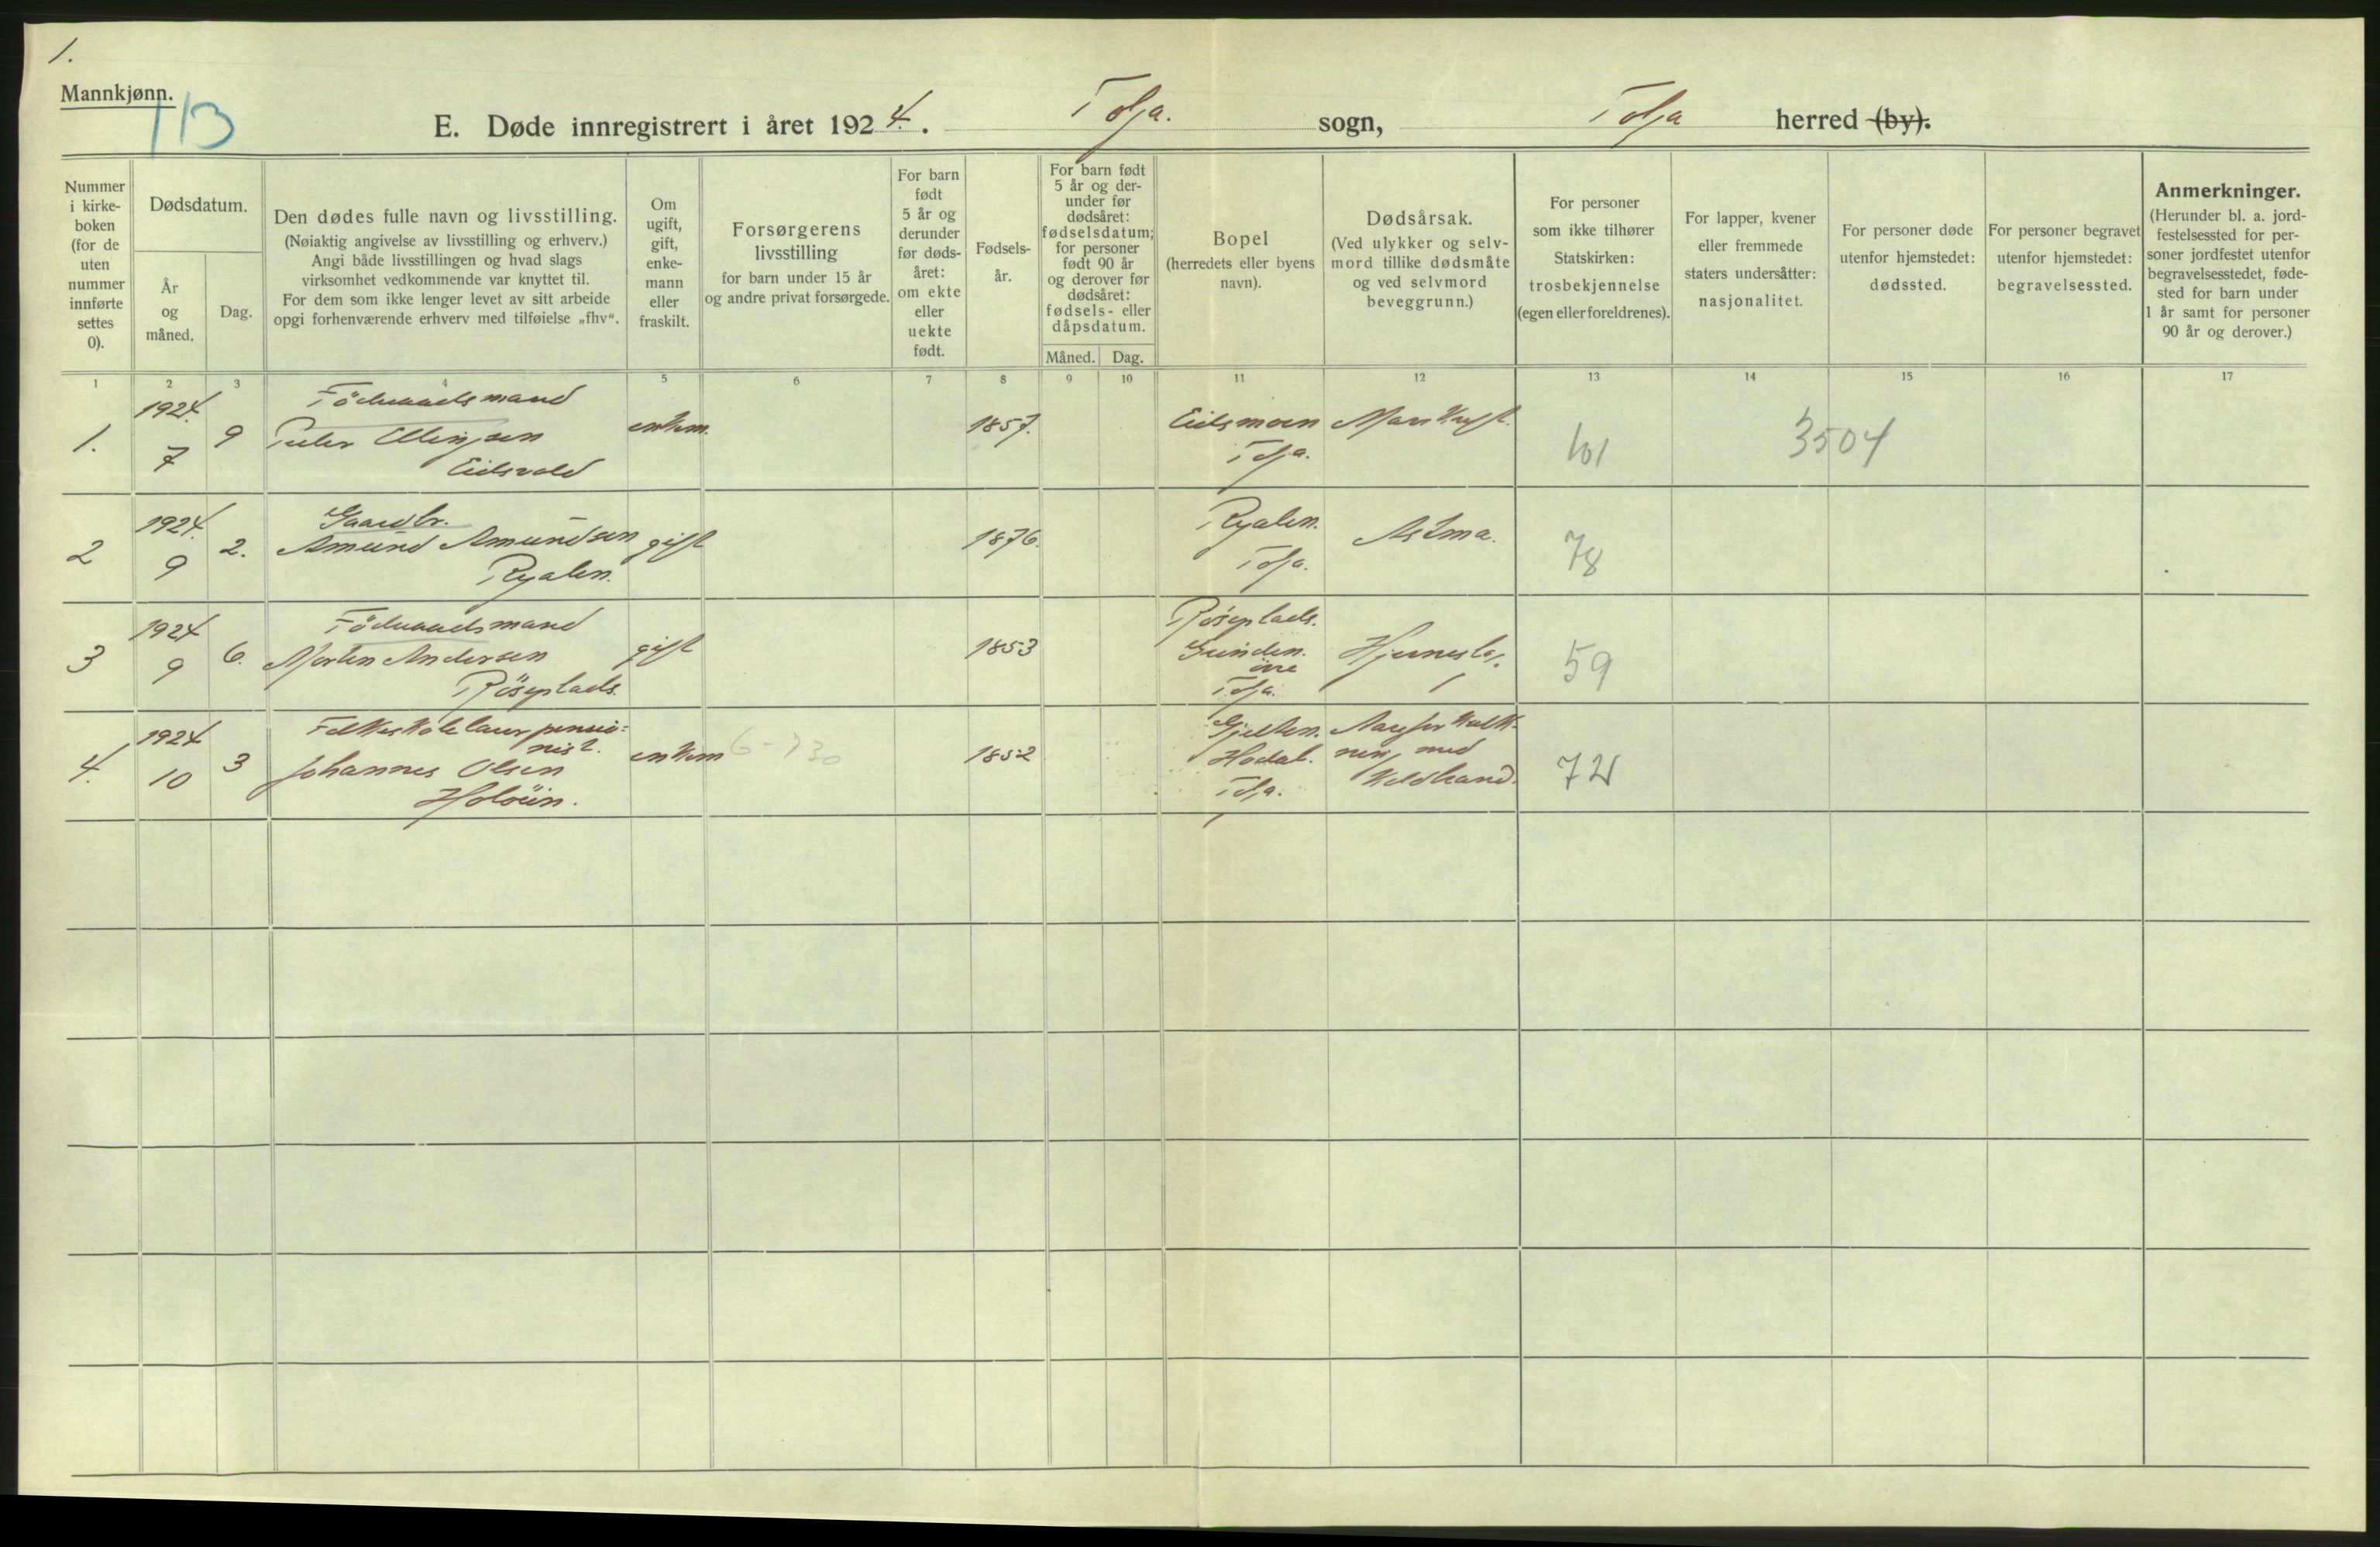 1.
Mannkjønn.
113
E. Døde innregistrert i året 1924. Tolga. sogn, Tolga herred (by).
Nummer i kirke- boken (for de uten nummer innførte settes 0).
Dødsdatum.
År og måned.
Dag.
Den dødes fulle navn og livsstilling.
(Nøiaktig angivelse av livsstilling og erhverv.)
Angi både livsstillingen og hvad slags
virksomhet vedkommende var knyttet til.
For dem som ikke lenger levet av sitt arbeide
opgi forhenværende erhverv med tilføielse „fhv“.
Om ugift, gift, enke- mann eller fraskilt.
Forsørgerens
livsstilling
for barn under 15 år
og andre privat forsørgede.
For barn født 5 år og derunder før døds- året: om ekte eller uekte født.
Fødsels- år.
For barn født 5 år og der- under før dødsåret: fødselsdatum; for personer født 90 år og derover før dødsåret: fødsels- eller dåpsdatum.
Måned. Dag.
Bopel
(herredets eller byens
navn).
Dødsårsak.
(Ved ulykker og selv-
mord tillike dødsmåte
og ved selvmord
beveggrunn.)
For personer
som ikke tilhører
Statskirken:
trosbekjennelse
(egen eller foreldrenes).
For lapper, kvener
eller fremmede
staters undersåtter:
nasjonalitet.
For personer døde
utenfor hjemstedet:
dødssted.
For personer begravet
utenfor hjemstedet:
begravelsessted.
Anmerkninger.
(Herunder bl. a. jord-
festelsessted for per-
soner jordfestet utenfor
begravelsesstedet, føde-
sted for barn under
1 år samt for personer
90 år og derover.)
1 2 3 4 5 6 7 8 9 10 11 12 13 14 15 16 17
1. 1924. 7 9 Föderaadsmand
Peder Ellingsen
Eidsvold
enkem. 1857. Eidsmoen
Tolga.
101 3504
2 1924. 9 2. Gaardbr.
Amund Amundsen
Ryalen.
gift 1876. Ryalen.
Tolga.
Astma. 78
3 1924 9 6. Föderaadsmand
Morten Andersen
Röseplads.
gift 1853 Röseplads.
Tolga.
Hjerneslag. 59
4. 1924 10 3 Folkeskolelærer pensio=
nist.
Johannes Olsen
Holöien.
enkem 1852
Hodal.
Tolga.
Aareforkalk=
ning med
Koldbrand.
72